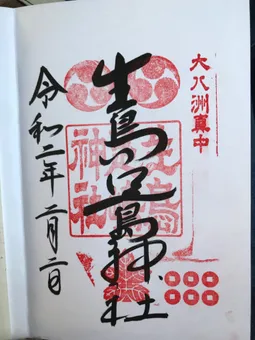 大八洲真中
生島足島神社
生島
神社
令和二年二月二日